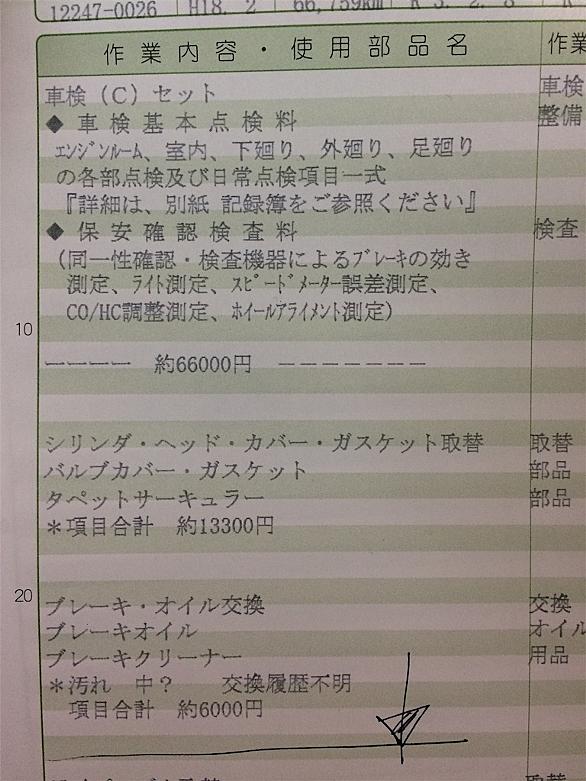 12247-0026 H18. 2 66,759km R 3. 2. 8
作業内容・使用部品名 作業
車検（C）セット 車検
◆ 車検基本点検料 整備
ｴﾝｼﾞﾝﾙｰﾑ、室内、下廻り、外廻り、足廻り
の各部点検及び日常点検項目一式
『詳細は、別紙 記録簿をご参照ください』
◆ 保安確認検査料 検査
（同一性確認・検査機器によるﾌﾞﾚｰｷの効き
測定、ﾗｲﾄ測定、ｽﾋﾟｰﾄﾞﾒｰﾀｰ誤差測定、
CO/HC調整測定、ﾎｲｰﾙｱﾗｲﾒﾝﾄ測定）
10
ーーーー 約66000円 －－－－－－－
シリンダ・ヘッド・カバー・ガスケット取替 取替
バルブカバー・ガスケット 部品
タペットサーキュラー 部品
＊項目合計 約13300円
20
ブレーキ・オイル交換 交換
ブレーキオイル オイル
ブレーキクリーナー 用品
＊汚れ 中？ 交換履歴不明
項目合計 約6000円